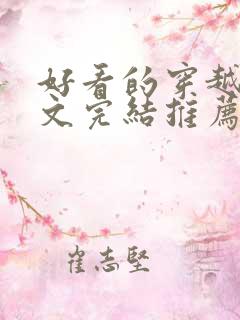 好看的穿越
文完結推薦
崔志堅